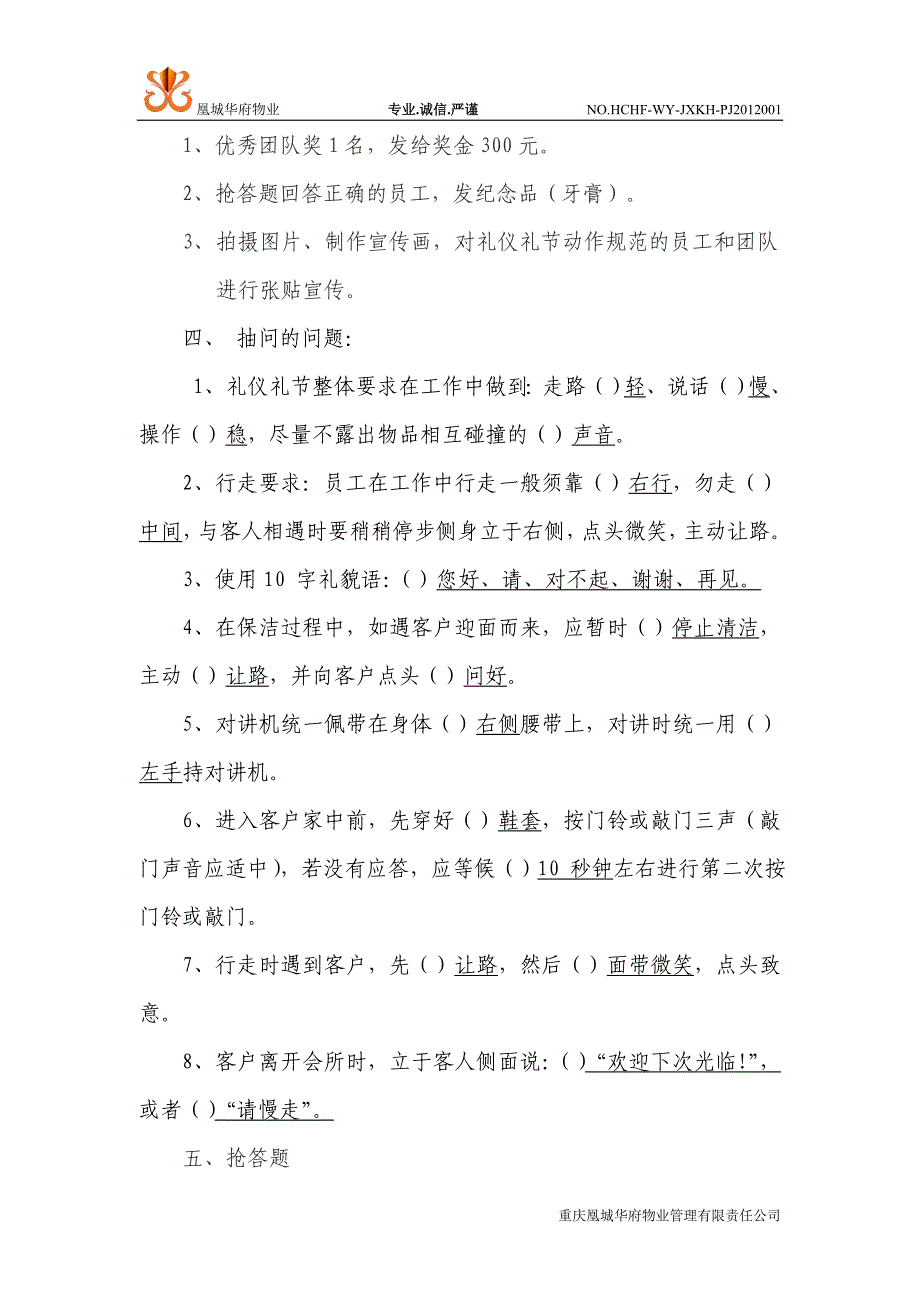 凰城华府物业 专业.诚信.严谨 NO.HCHF-WY-JXKH-PJ2012001
1、优秀团队奖1名，发给奖金300元。
2、抢答题回答正确的员工，发纪念品（牙膏）。
3、拍摄图片、制作宣传画，对礼仪礼节动作规范的员工和团队
进行张贴宣传。
四、 抽问的问题：
1、礼仪礼节整体要求在工作中做到：走路（）轻、说话（）慢、
操作（）稳，尽量不露出物品相互碰撞的（）声音。
2、行走要求：员工在工作中行走一般须靠（）右行，勿走（）
中间，与客人相遇时要稍稍停步侧身立于右侧，点头微笑，主动让路。
3、使用10 字礼貌语：（）您好、请、对不起、谢谢、再见。
4、在保洁过程中，如遇客户迎面而来，应暂时（）停止清洁，
主动（）让路，并向客户点头（）问好。
5、对讲机统一佩带在身体（）右侧腰带上，对讲时统一用（）
左手持对讲机。
6、进入客户家中前，先穿好（）鞋套，按门铃或敲门三声（敲
门声音应适中），若没有应答，应等候（）10 秒钟左右进行第二次按
门铃或敲门。
7、行走时遇到客户，先（）让路，然后（）面带微笑，点头致
意。
8、客户离开会所时，立于客人侧面说：（）“欢迎下次光临！”，
或者（）“请慢走”。
五、抢答题
重庆凰城华府物业管理有限责任公司